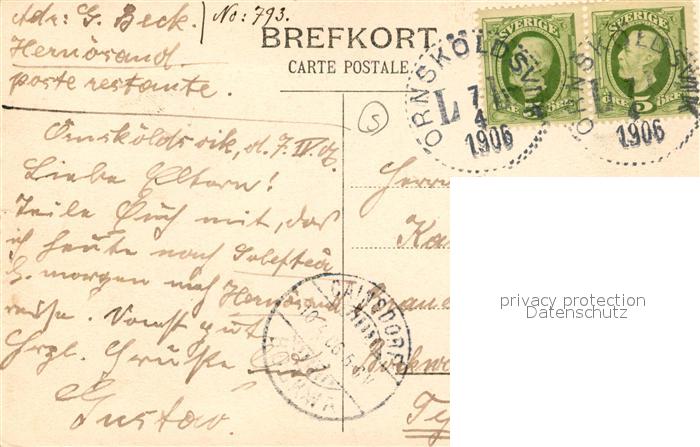 Adr: G. Beck. No: 793.
Hernösand
poste restante.
BREFKORT.
CARTE POSTALE.
SVERIGE SVERIGE
5 ÖRE 5
ÖRNSKÖLDSVIK
7 4
1906
ÖRNSKÖLDSVIK
7 4
1906
S
Örnsköldsvik, d. 7. IV. 06.
Liebe Eltern!
Teile Euch mit, daß
ich heute nach Solefteå
& morgen nach Hernösand
reise. Sonst gut
Hrzl. Grüße
Gustav.
Herrn
CAINSDORF
privacy protection
Datenschutz